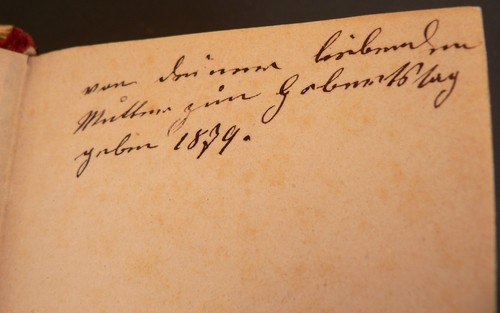 von deiner liebenden
Mutter zum Geburtstag
geben 1879.